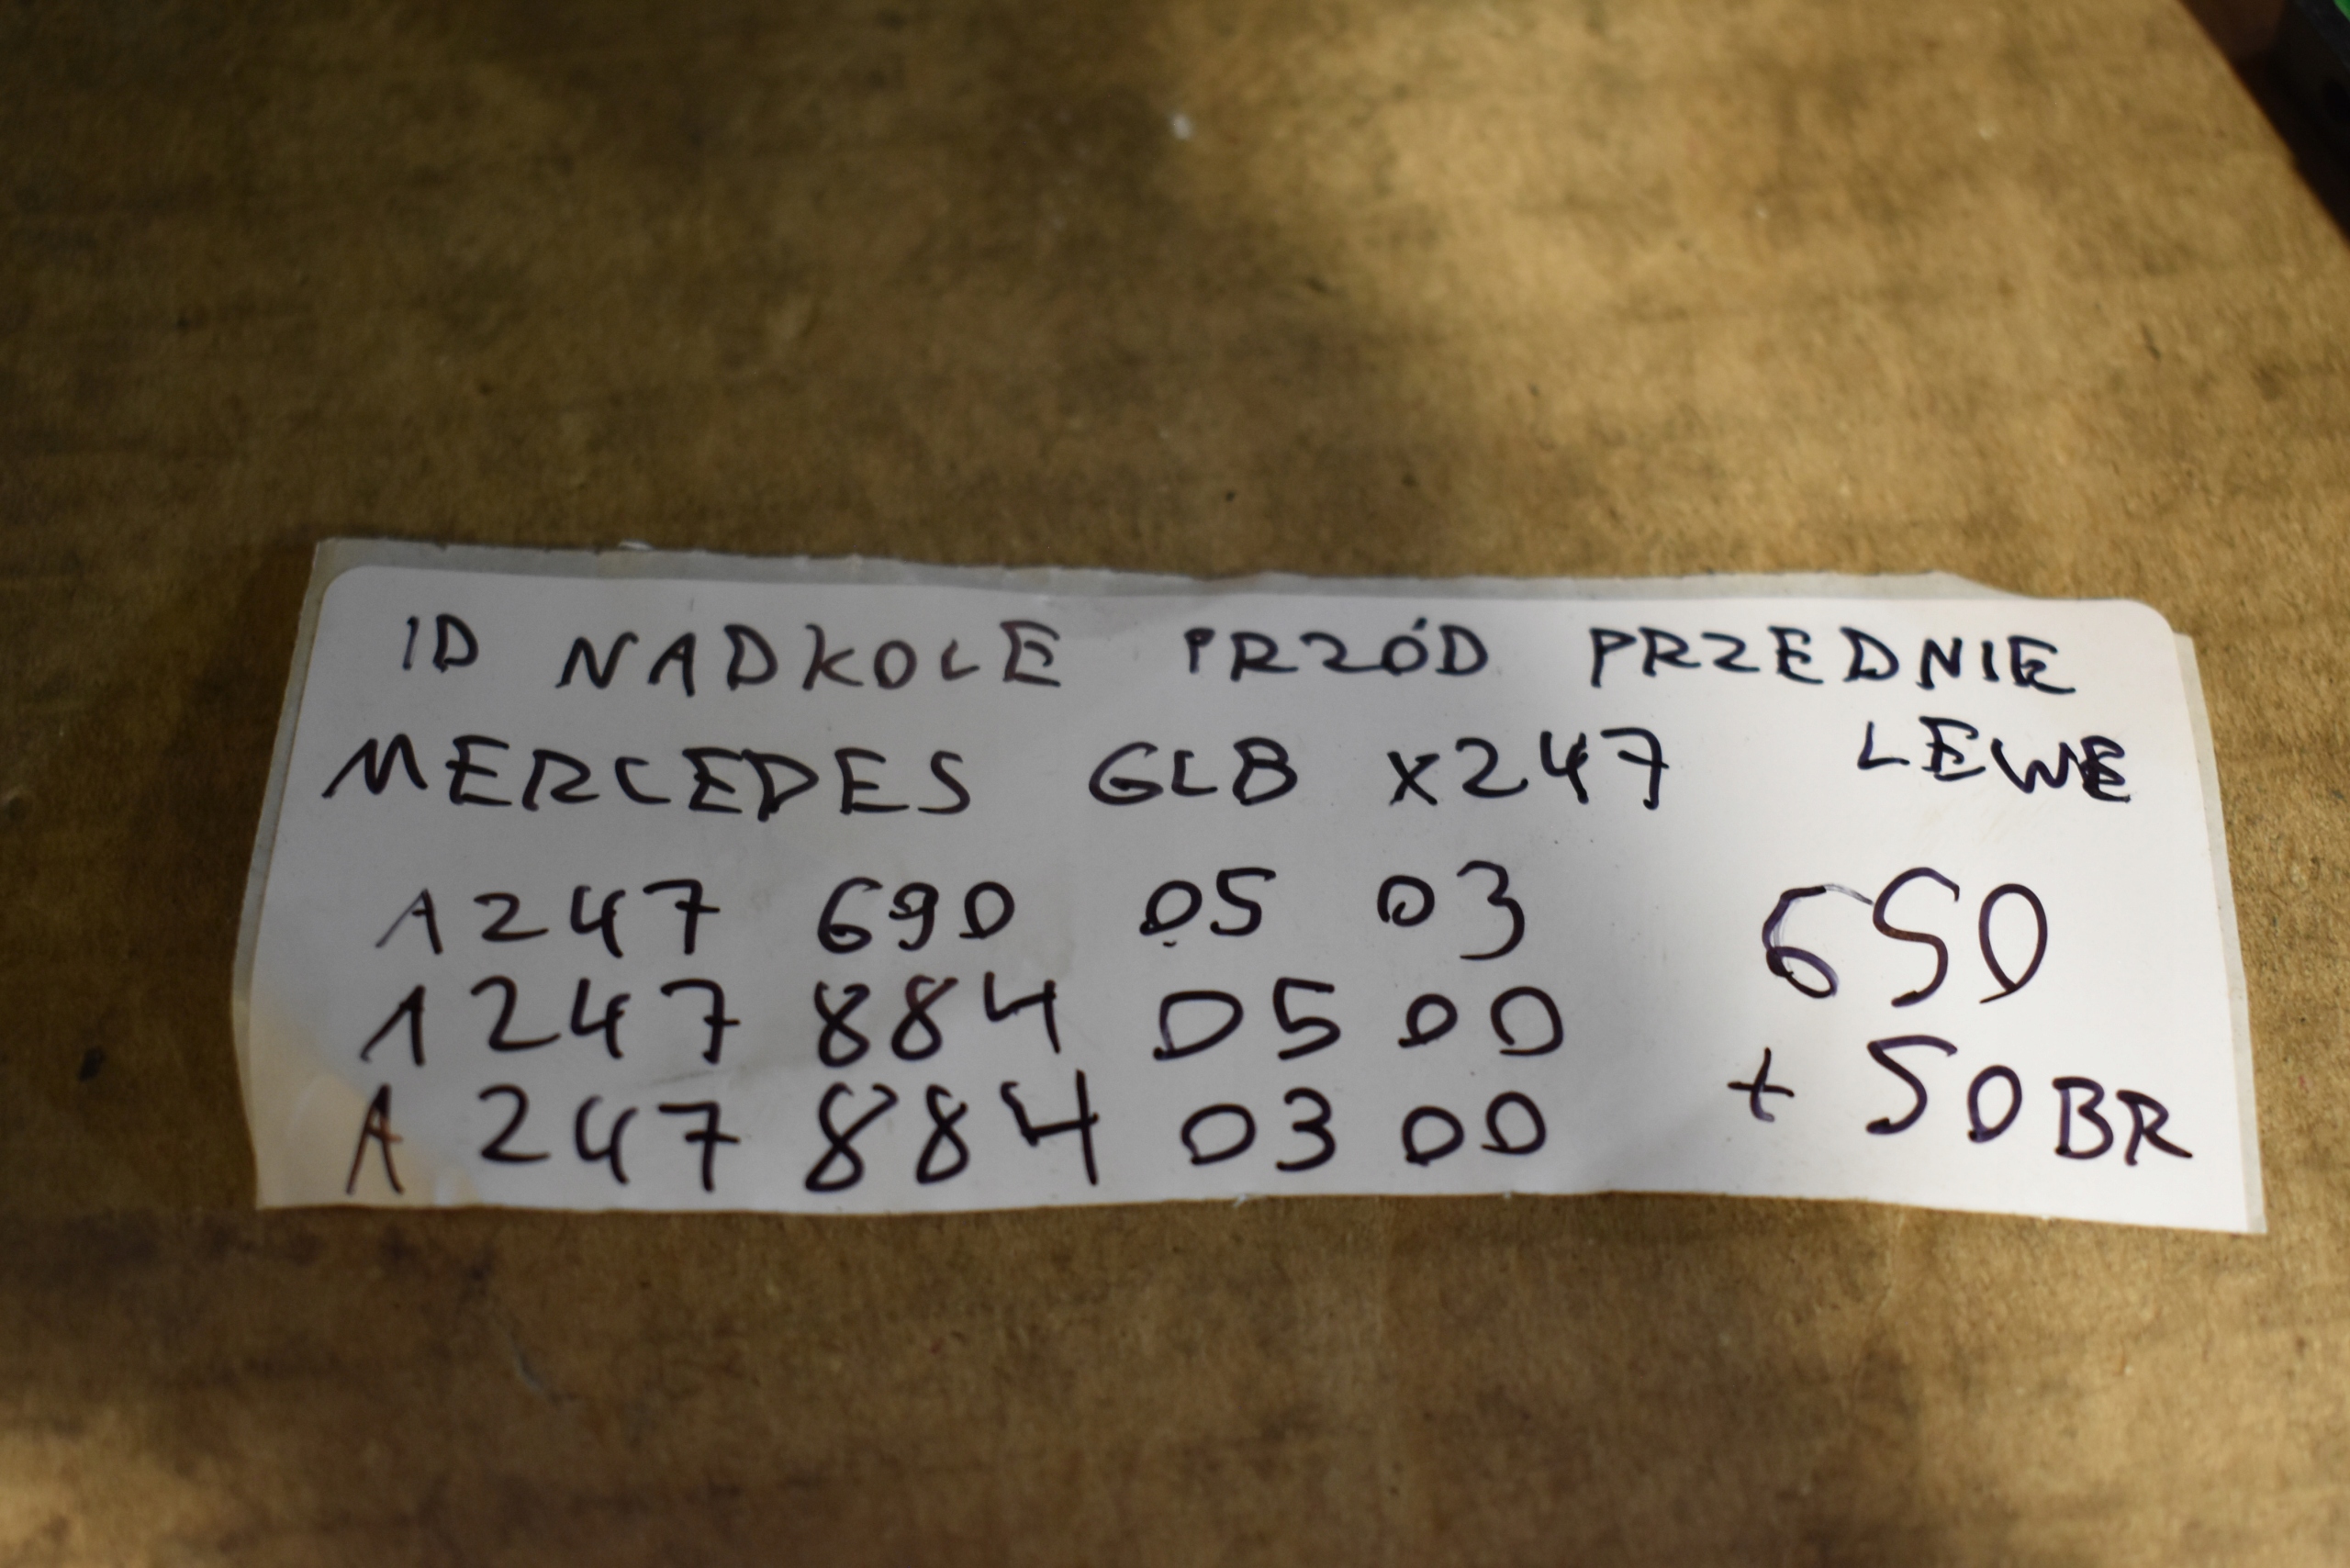 ID NADKOLE PRZÓD PRZEDNIE
MERCEDES GLB X247 LEWE
A247 690 05 03 650
A 247 884 05 00
A 247 884 03 00 + 50BR